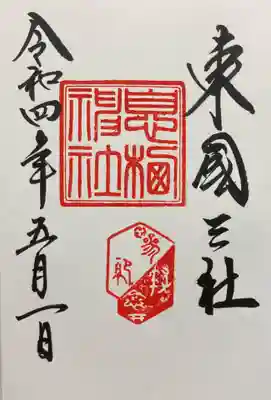 東國三社
息栖
神社
参拝
令和四年五月一日